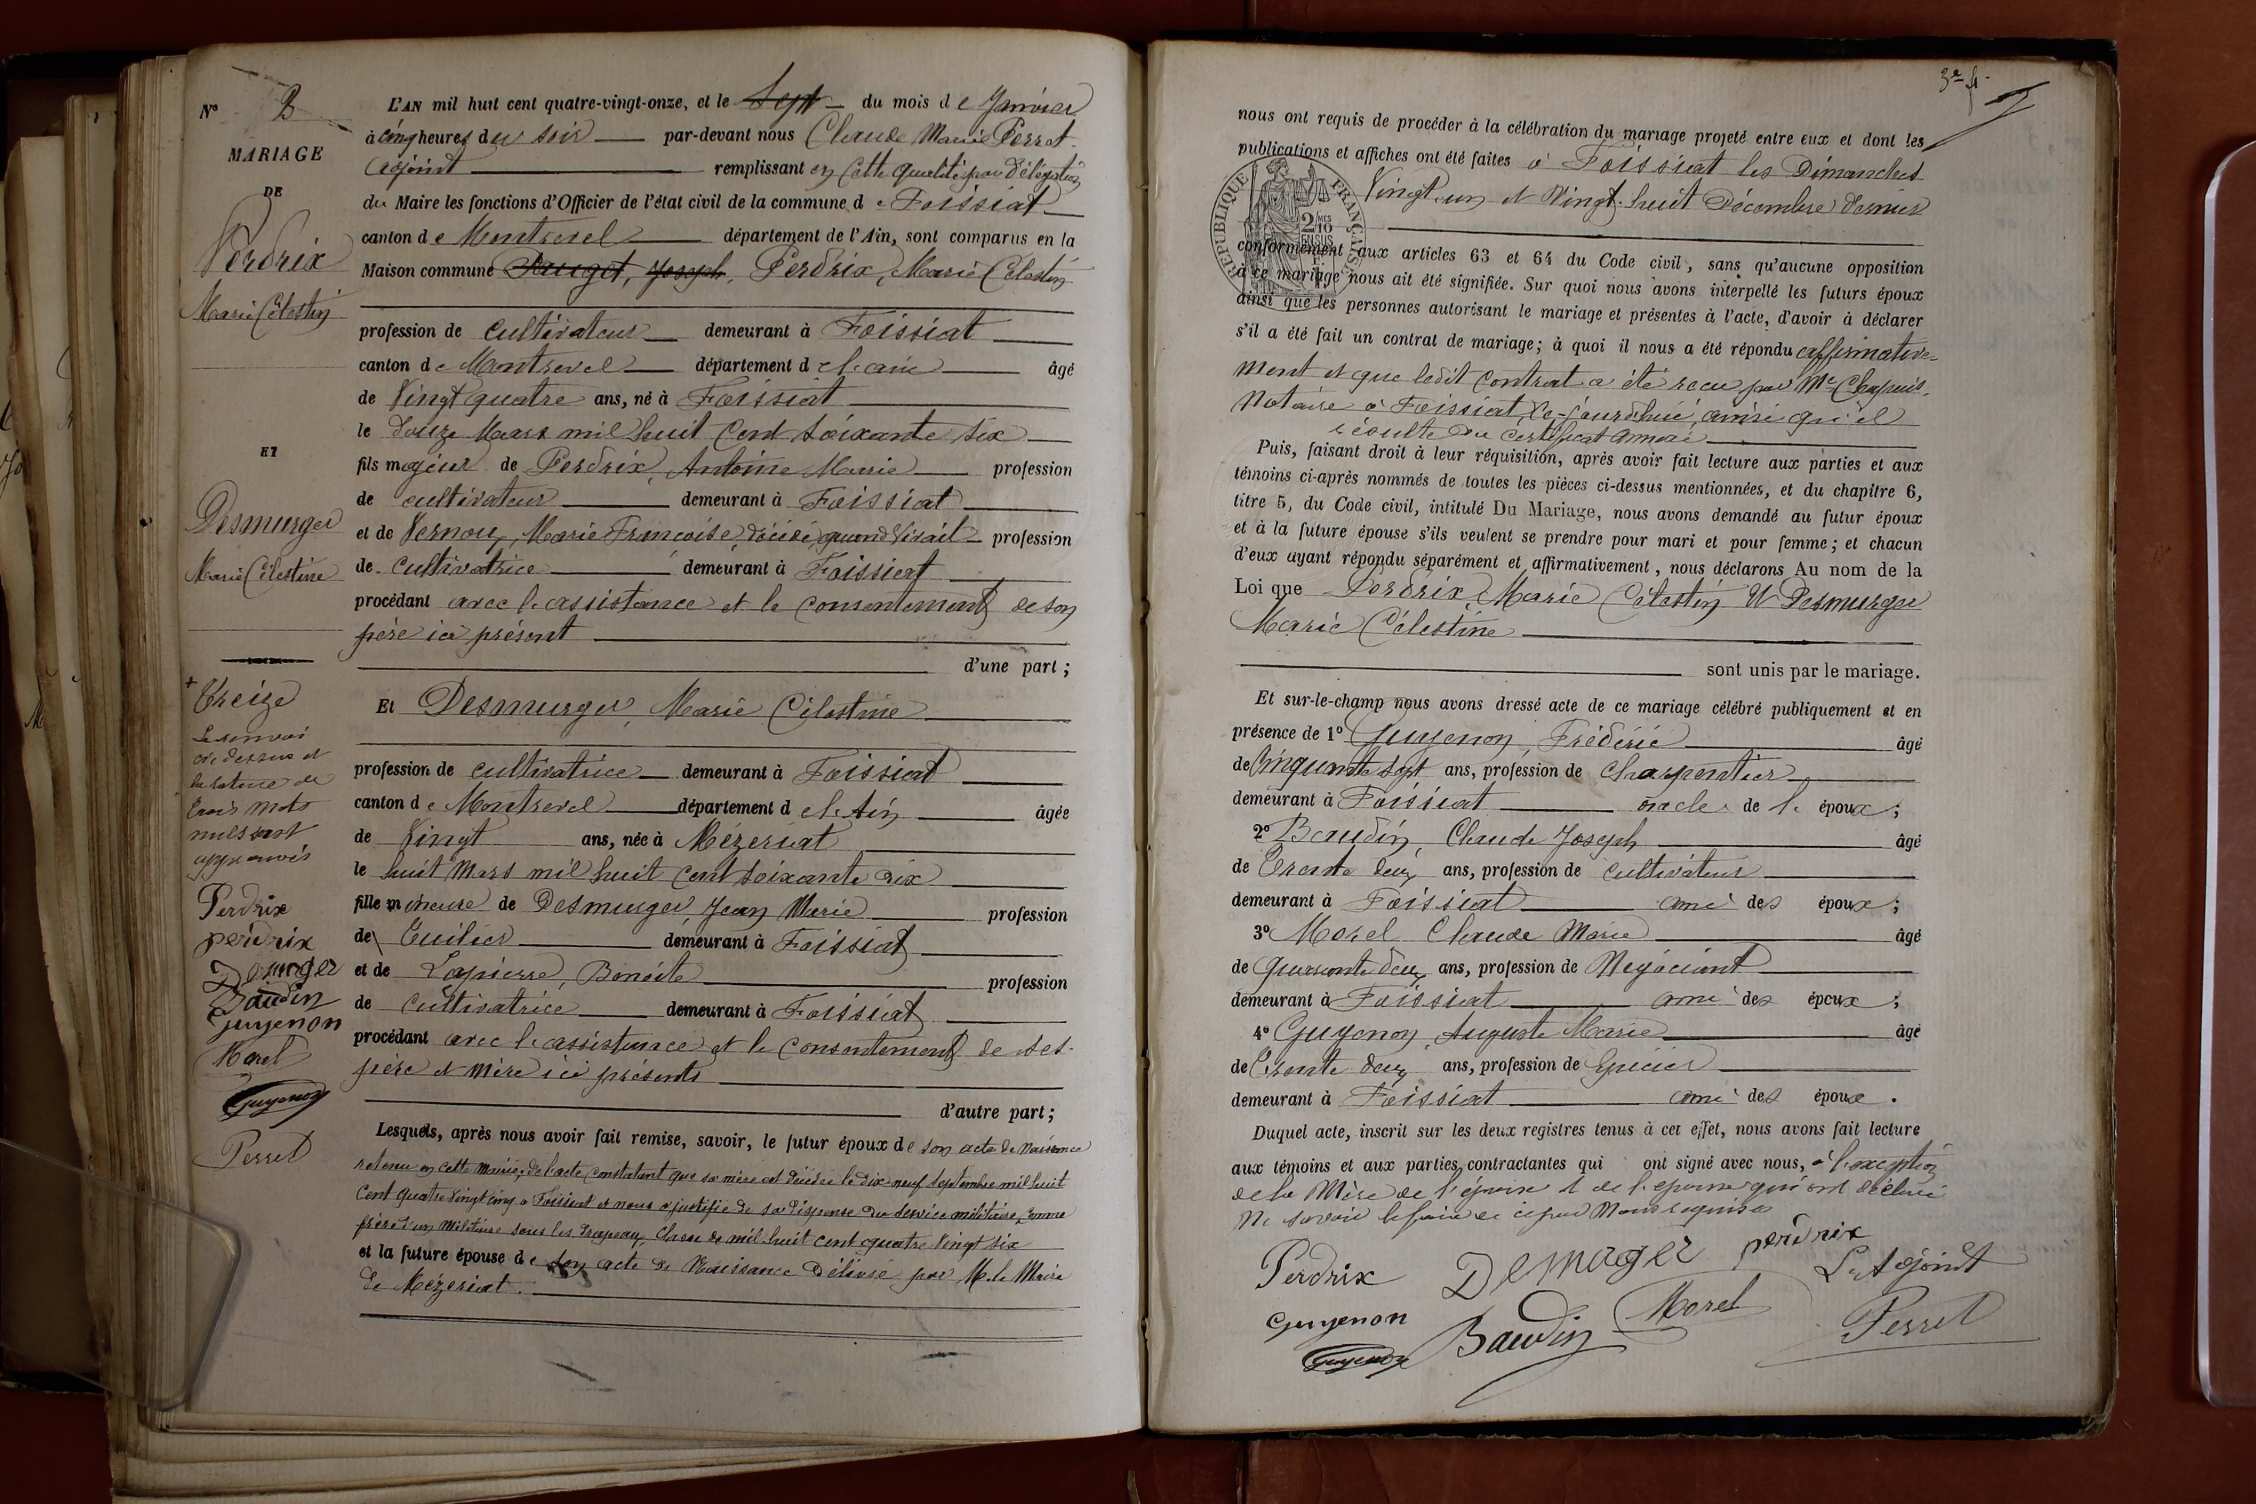 N° 3
MARIAGE
DE
Perdrix
Marie Célestin
ET
Desmurger
Marie Célestine
+ Treize
Le renvoi
ci-dessus et
la rature de
trois mots
nuls sont
approuvés
Perdrix
perdrix
Demurger
Baudin
Guyenon
Morel
Guyenon
Perret
L'AN mil huit cent quatre-vingt-onze, et le Sept du mois de Janvier
à cinq heures du soir par-devant nous Claude Marie Perret
adjoint remplissant en cette qualité par délégation
du Maire les fonctions d'Officier de l'état civil de la commune de Foissiat
canton de Montrevel département de l'Ain, sont comparus en la
Maison commune Joseph, Perdrix, Marie Célestin
profession de cultivateur demeurant à Foissiat
canton de Montrevel département de l'ain âgé
de Vingt quatre ans, né à Foissiat
le douze Mars mil huit cent soixante six
fils majeur de Perdrix, Antoine Marie profession
de cultivateur demeurant à Foissiat
et de Vernoux, Marie Françoise, décédée, quand vivait profession
de cultivatrice demeurant à Foissiat
procédant avec l'assistance et le consentement de son
père ici présent
d'une part ;
Et Desmurger, Marie Célestine
profession de cultivatrice demeurant à Foissiat
canton de Montrevel département de l'Ain âgée
de Vingt ans, née à Mézériat
le huit Mars mil huit cent soixante dix
fille mineure de Desmurger, Jean Marie profession
de Tuilier demeurant à Foissiat
et de Lapierre, Benoite profession
de cultivatrice demeurant à Foissiat
procédant avec l'assistance et le consentement de ses
père et mère ici présents
d'autre part ;
Lesquels, après nous avoir fait remise, savoir, le futur époux de son acte de Naissance
retenu en cette Mairie, de l'acte constatant que sa mère est décédée le dix-neuf Septembre mil huit
cent quatre vingt cinq à Foissiat et nous a justifié de sa dispense du service militaire, comme
frère d'un militaire sous les drapeaux, classe de mil huit cent quatre vingt six
et la future épouse de son acte de Naissance délivré par M. le Maire
de Mézériat.
3e f.
nous ont requis de procéder à la célébration du mariage projeté entre eux et dont les
publications et affiches ont été faites à Foissiat les Dimanches
Vingt-un et Vingt-huit Décembre dernier
RÉPUBLIQUE FRANÇAISE
2/10 EN SUS
conformément aux articles 63 et 64 du Code civil, sans qu'aucune opposition
à ce mariage nous ait été signifiée. Sur quoi nous avons interpellé les futurs époux
ainsi que les personnes autorisant le mariage et présentes à l'acte, d'avoir à déclarer
s'il a été fait un contrat de mariage ; à quoi il nous a été répondu affirmative-
ment et que ledit contrat a été reçu par Me Chapuis
Notaire à Foissiat, ce-jourd'hui, ainsi qu'il
résulte du certificat annexé
Puis, faisant droit à leur réquisition, après avoir fait lecture aux parties et aux
témoins ci-après nommés de toutes les pièces ci-dessus mentionnées, et du chapitre 6,
titre 5, du Code civil, intitulé Du Mariage, nous avons demandé au futur époux
et à la future épouse s'ils veulent se prendre pour mari et pour femme ; et chacun
d'eux ayant répondu séparément et affirmativement, nous déclarons Au nom de la
Loi que Perdrix, Marie Célestin et Desmurger
Marie Célestine
sont unis par le mariage.
Et sur-le-champ nous avons dressé acte de ce mariage célébré publiquement et en
présence de 1° Guyenon, Frédéric âgé
de Cinquante sept ans, profession de charpentier
demeurant à Foissiat oncle de l'époux ;
2° Baudin, Claude Joseph âgé
de Trente deux ans, profession de cultivateur
demeurant à Foissiat ami des époux ;
3° Morel Claude Marie âgé
de quarante deux ans, profession de Négociant
demeurant à Foissiat ami des époux ;
4° Guyenon, Auguste Marie âgé
de Trente deux ans, profession de Epicier
demeurant à Foissiat ami des époux.
Duquel acte, inscrit sur les deux registres tenus à cet effet, nous avons fait lecture
aux témoins et aux parties contractantes qui ont signé avec nous, à l'exception
de la Mère de l'épouse et de l'épouse qui ont déclaré
Ne savoir le faire de ce par Nous requises
Perdrix Demurger perdrix L'Adjoint
Guyenon Baudin Morel Perret
Guyenon